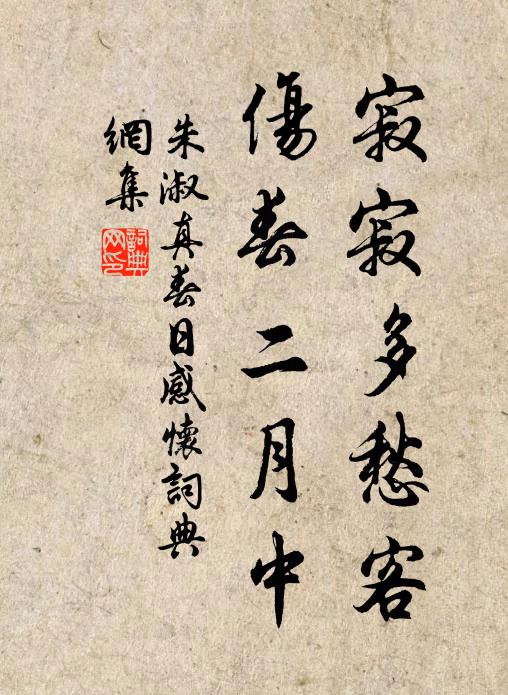 寂寂多愁客
傷春二月中
朱淑真春日感懷詞典
網集
詞典
网印